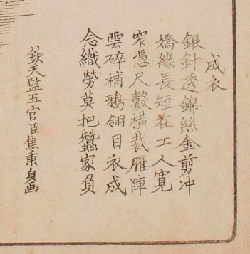 成衣
銀針透縷絲金剪冲
嬌態長短在工人寬
窄憑尺縠橫裁雁陣
雲碎補鵝翎目衣成
念織勞莫把蠶家負
欽天監五官臣焦秉貞画